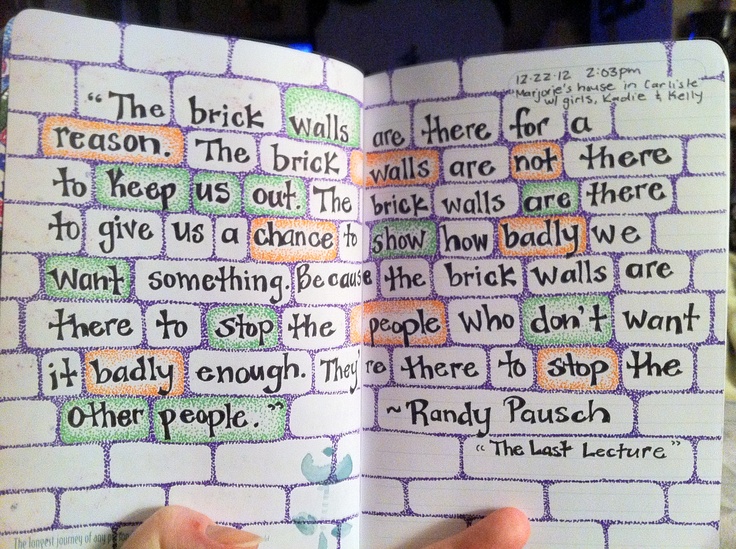 12·22·12 2:03pm
Marjorie's house in Carlisle
w/ girls, Kadie & Kelly
"The brick walls are there for a
reason. The brick walls are not there
to keep us out. The brick walls are there
to give us a chance to show how badly we
want something. Because the brick walls are
there to stop the people who don't want
it badly enough. They're there to stop the
other people."
~Randy Pausch
"The Last Lecture"
The longest journey of any